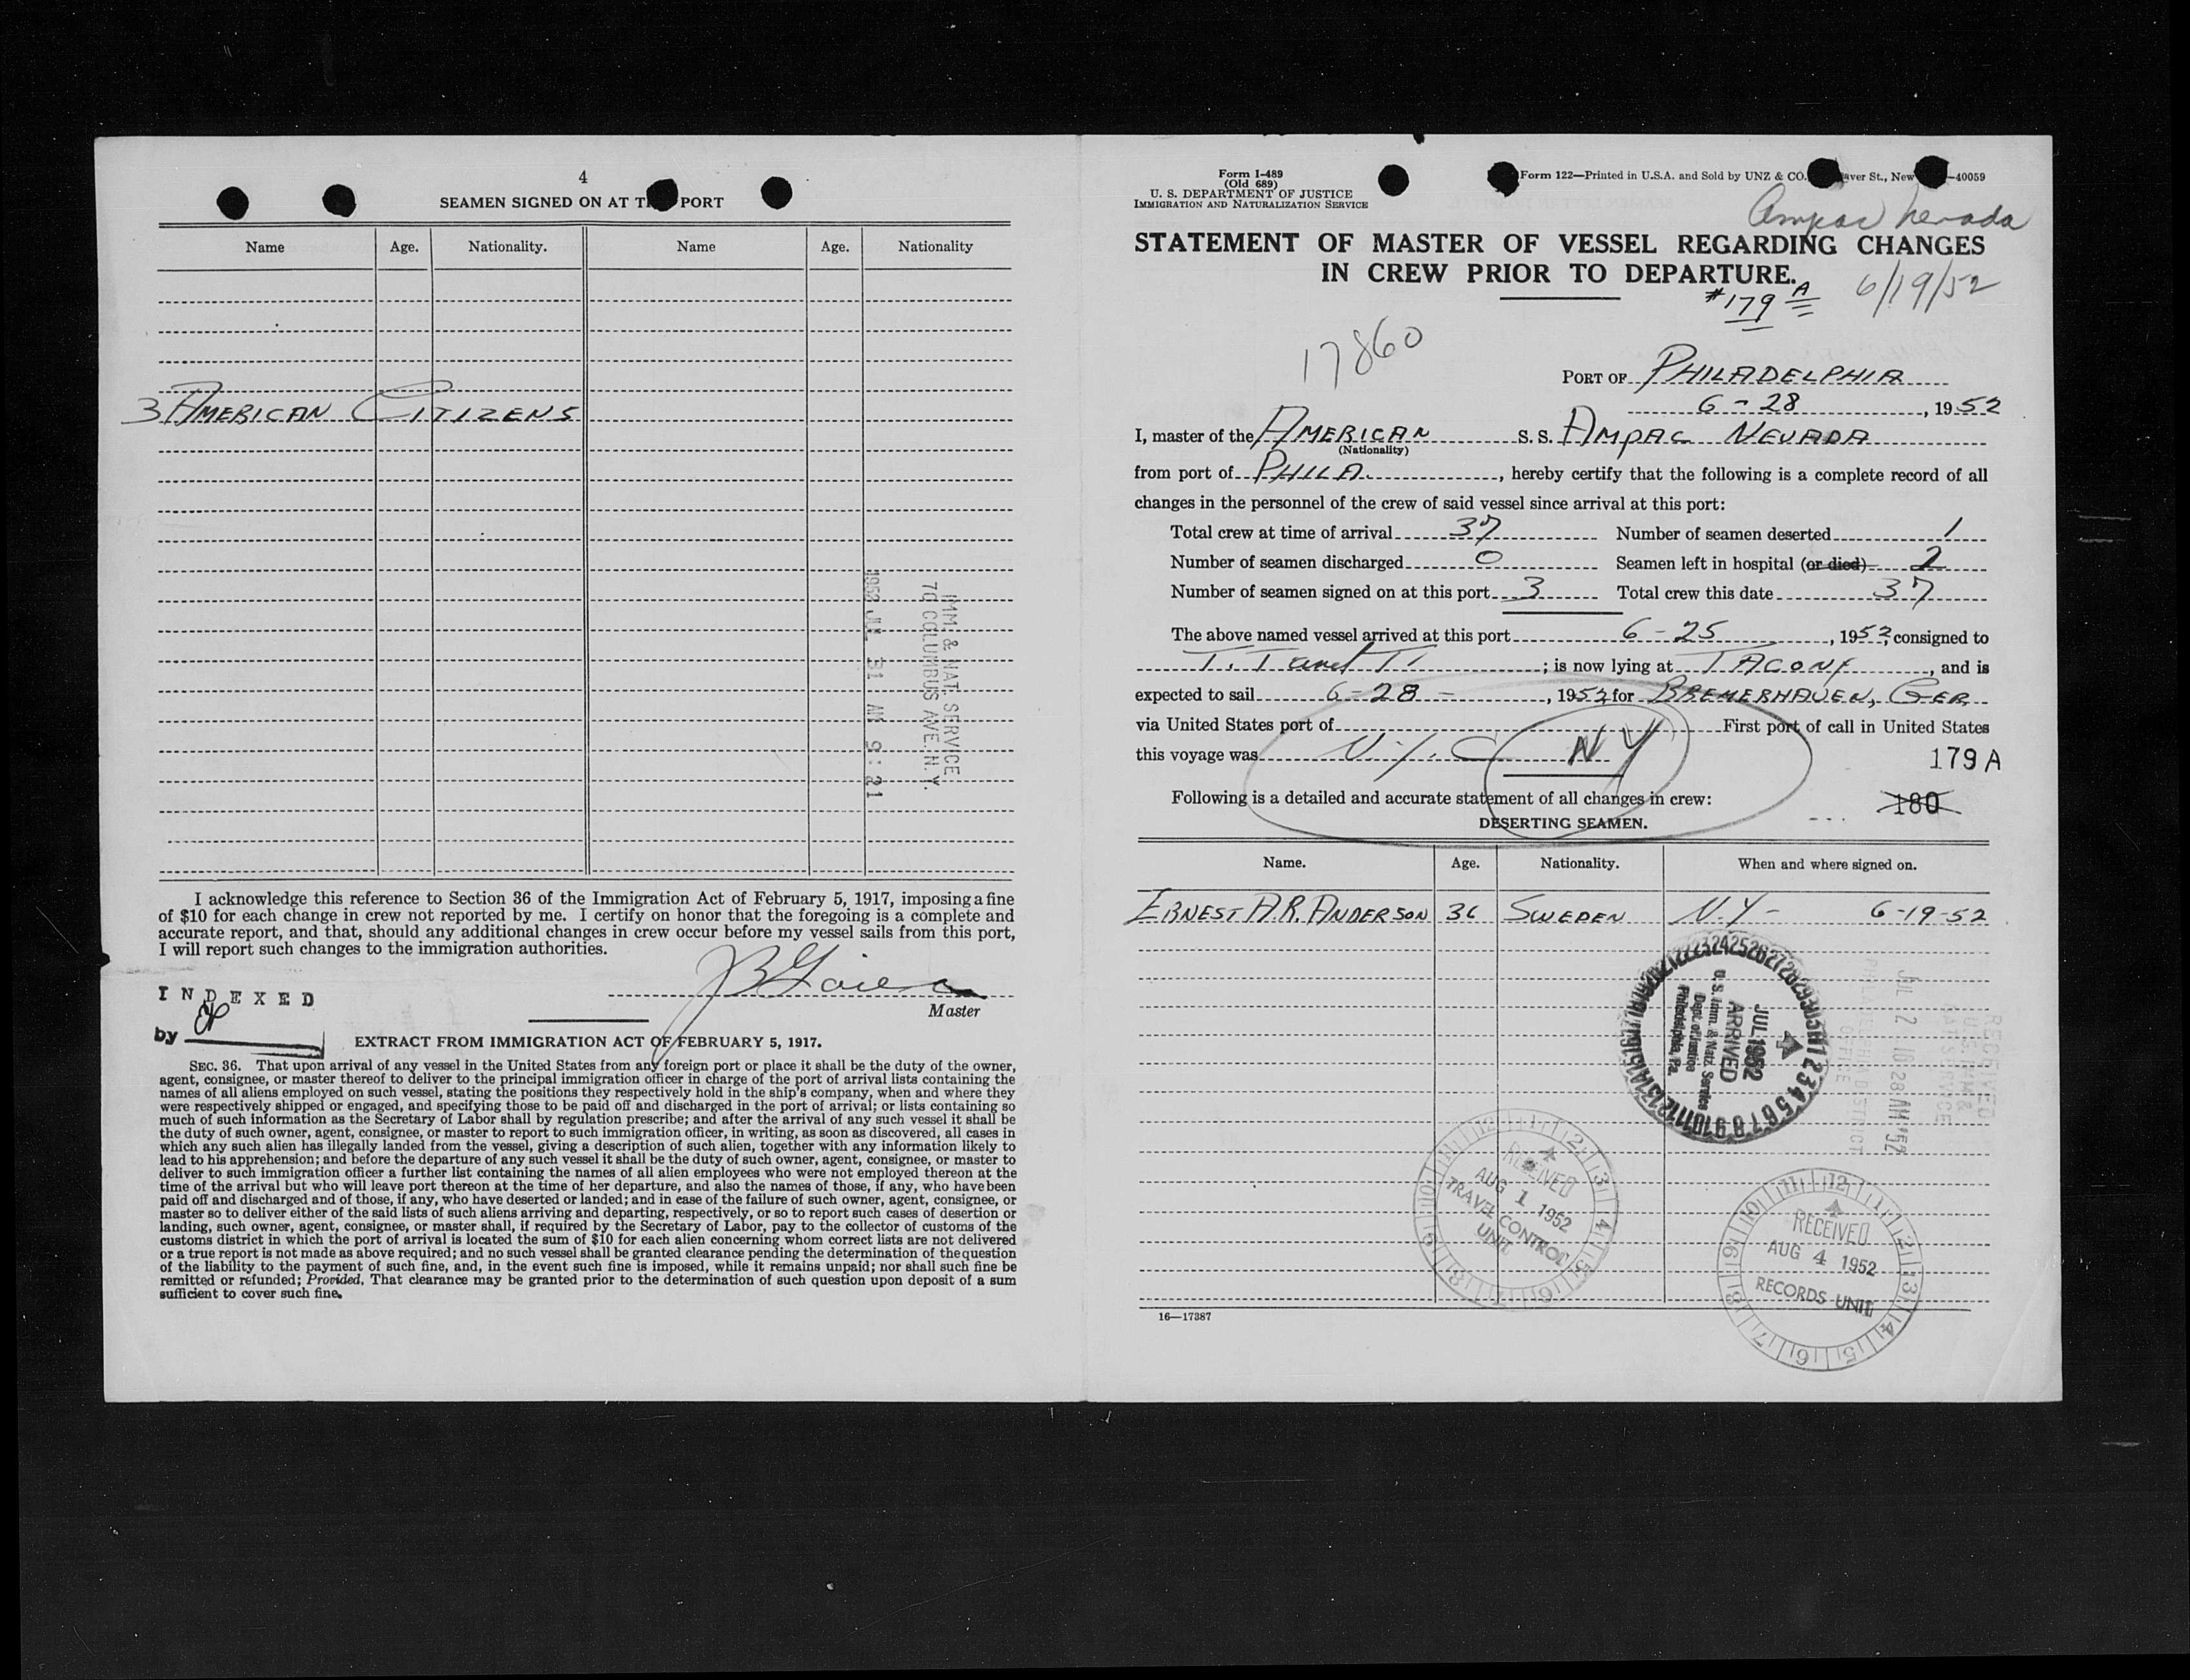 4
SEAMEN SIGNED ON AT T PORT
Name Age. Nationality. Name Age. Nationality
3 AMERICAN CITIZENS
IMM & NAT. SERVICE
70 COLUMBUS AVE. N.Y.
1952 JUL 31 AM 9:21
I acknowledge this reference to Section 36 of the Immigration Act of February 5, 1917, imposing a fine
of $10 for each change in crew not reported by me. I certify on honor that the foregoing is a complete and
accurate report, and that, should any additional changes in crew occur before my vessel sails from this port,
I will report such changes to the immigration authorities.
Master
INDEXED
by
EXTRACT FROM IMMIGRATION ACT OF FEBRUARY 5, 1917.
SEC. 36. That upon arrival of any vessel in the United States from any foreign port or place it shall be the duty of the owner,
agent, consignee, or master thereof to deliver to the principal immigration officer in charge of the port of arrival lists containing the
names of all aliens employed on such vessel, stating the positions they respectively hold in the ship's company, when and where they
were respectively shipped or engaged, and specifying those to be paid off and discharged in the port of arrival; or lists containing so
much of such information as the Secretary of Labor shall by regulation prescribe; and after the arrival of any such vessel it shall be
the duty of such owner, agent, consignee, or master to report to such immigration officer, in writing, as soon as discovered, all cases in
which any such alien has illegally landed from the vessel, giving a description of such alien, together with any information likely to
lead to his apprehension; and before the departure of any such vessel it shall be the duty of such owner, agent, consignee, or master to
deliver to such immigration officer a further list containing the names of all alien employees who were not employed thereon at the
time of the arrival but who will leave port thereon at the time of her departure, and also the names of those, if any, who have been
paid off and discharged and of those, if any, who have deserted or landed; and in case of the failure of such owner, agent, consignee, or
master so to deliver either of the said lists of such aliens arriving and departing, respectively, or so to report such cases of desertion or
landing, such owner, agent, consignee, or master shall, if required by the Secretary of Labor, pay to the collector of customs of the
customs district in which the port of arrival is located the sum of $10 for each alien concerning whom correct lists are not delivered
or a true report is not made as above required; and no such vessel shall be granted clearance pending the determination of the question
of the liability to the payment of such fine, and, in the event such fine is imposed, while it remains unpaid; nor shall such fine be
remitted or refunded; Provided, That clearance may be granted prior to the determination of such question upon deposit of a sum
sufficient to cover such fine.
Form I-489
(Old 689)
U. S. DEPARTMENT OF JUSTICE
IMMIGRATION AND NATURALIZATION SERVICE
Form 122—Printed in U.S.A. and Sold by UNZ & CO. aver St., New —40059
Ampac Nevada
STATEMENT OF MASTER OF VESSEL REGARDING CHANGES
IN CREW PRIOR TO DEPARTURE.
#179 A 6/19/52
17860
PORT OF PHILADELPHIA
6-28, 1952
I, master of the AMERICAN S. S. AMPAC NEVADA
(Nationality)
from port of PHILA., hereby certify that the following is a complete record of all
changes in the personnel of the crew of said vessel since arrival at this port:
Total crew at time of arrival 37 Number of seamen deserted 1
Number of seamen discharged 0 Seamen left in hospital (or died) 2
Number of seamen signed on at this port 3 Total crew this date 37
The above named vessel arrived at this port 6-25, 1952, consigned to
; is now lying at TACONY, and is
expected to sail 6-28-, 1952, for BREMERHAVEN, GER
via United States port of First port of call in United States
this voyage was N.Y.C NY
179 A
Following is a detailed and accurate statement of all changes in crew:
180
DESERTING SEAMEN.
Name. Age. Nationality. When and where signed on.
ERNEST A.R. ANDERSON 36 SWEDEN N.Y- 6-19-52
JUL 1952
ARRIVED
U. S. Imm. & Natz. Service
Dept. of Justice
Philadelphia, Pa.
RECEIVED
JUL 2 10 28 AM '52
RECEIVED
AUG 1 1952
TRAVEL CONTROL
UNIT
RECEIVED
AUG 4 1952
RECORDS UNIT
16—17387